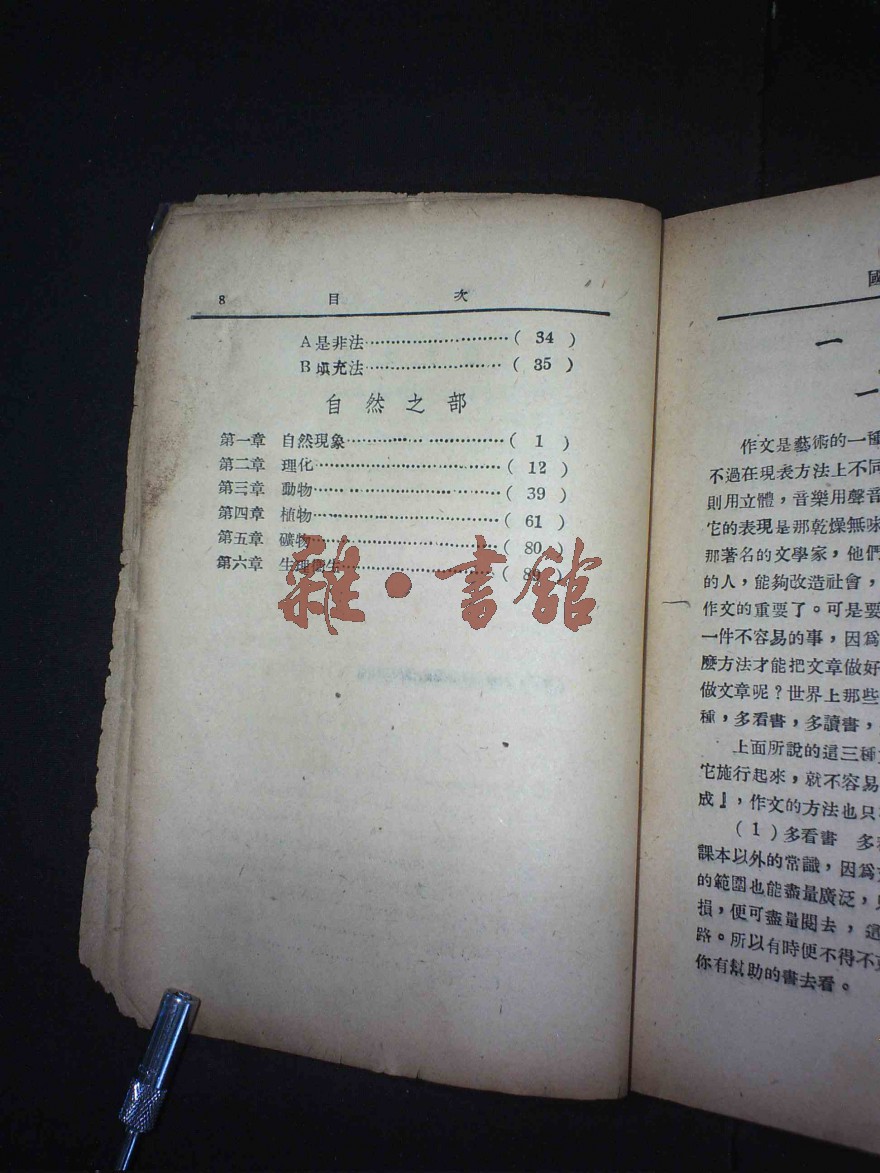 8 目 次
A是非法 ( 34 )
B填充法 ( 35 )
自然之部
第一章 自然現象 ( 1 )
第二章 理化 ( 12 )
第三章 動物 ( 39 )
第四章 植物 ( 61 )
第五章 礦物 ( 80 )
第六章 生理衞生 ( 89 )
雜·書館
國
一
一
作文是藝術的一種
不過在現表方法上不同
則用立體，音樂用聲音
它的表現是那乾燥無味
那著名的文學家，他們
的人，能夠改造社會，
作文的重要了。可是要
一件不容易的事，因爲
麼方法才能把文章做好
做文章呢？世界上那些
種，多看書，多讀書，
上面所說的這三種
它施行起來，就不容易
成』，作文的方法也只
(1)多看書 多
課本以外的常識，因爲
的範圍也能盡量廣泛，
損，便可盡量閱去，這
路。所以有時便不得不
你有幫助的書去看。